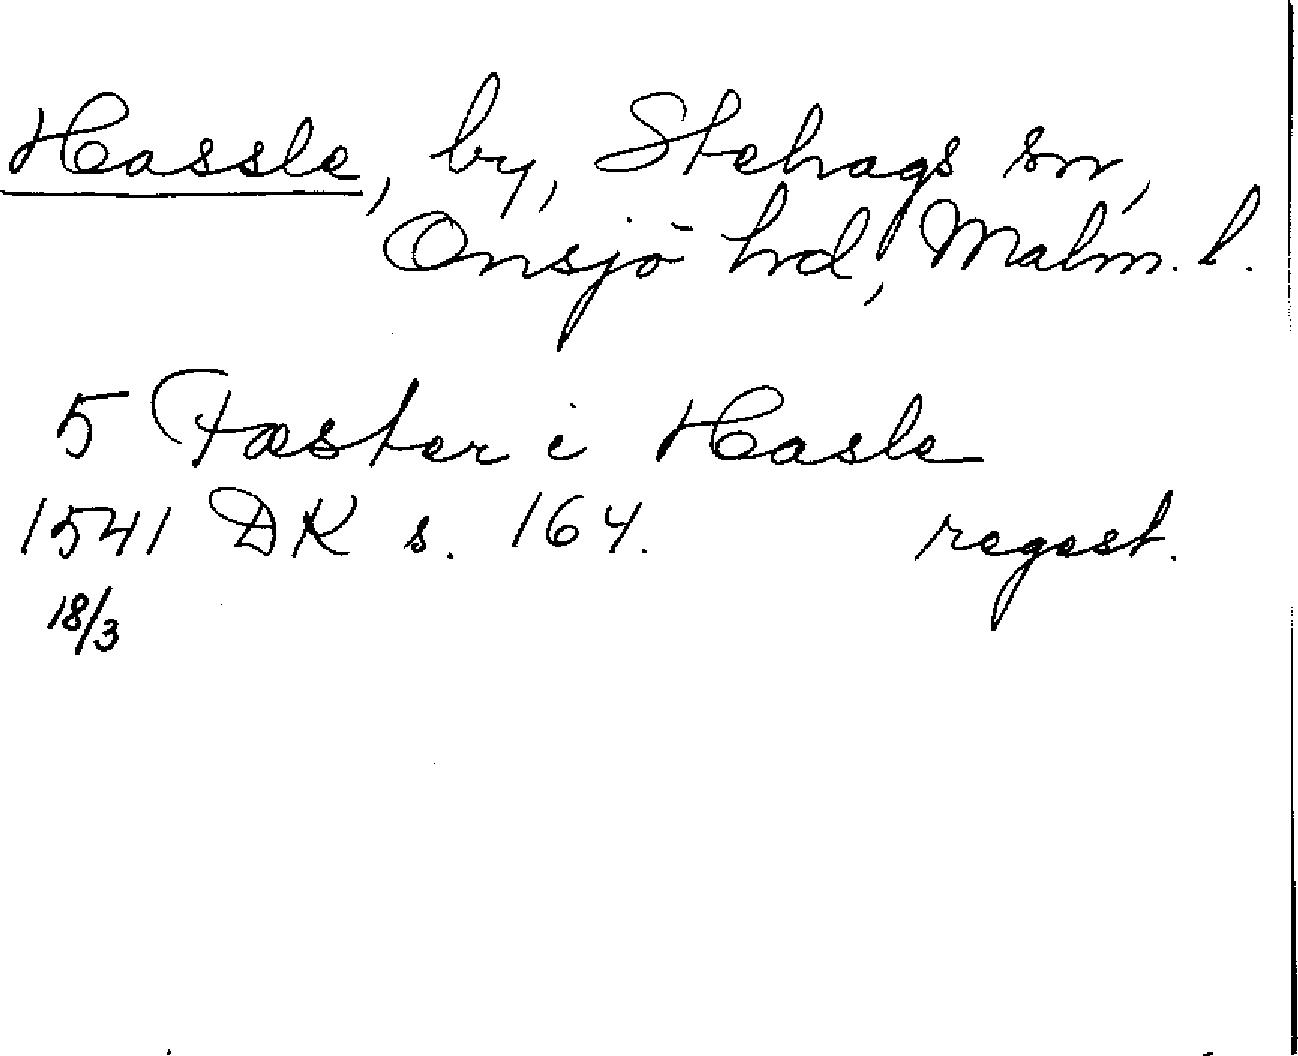 Hassle, by, Stehags sn,
Onsjö hd, Malm. l.
5 Fæster i Hasle
1541 DK s. 164. regest.
18/3